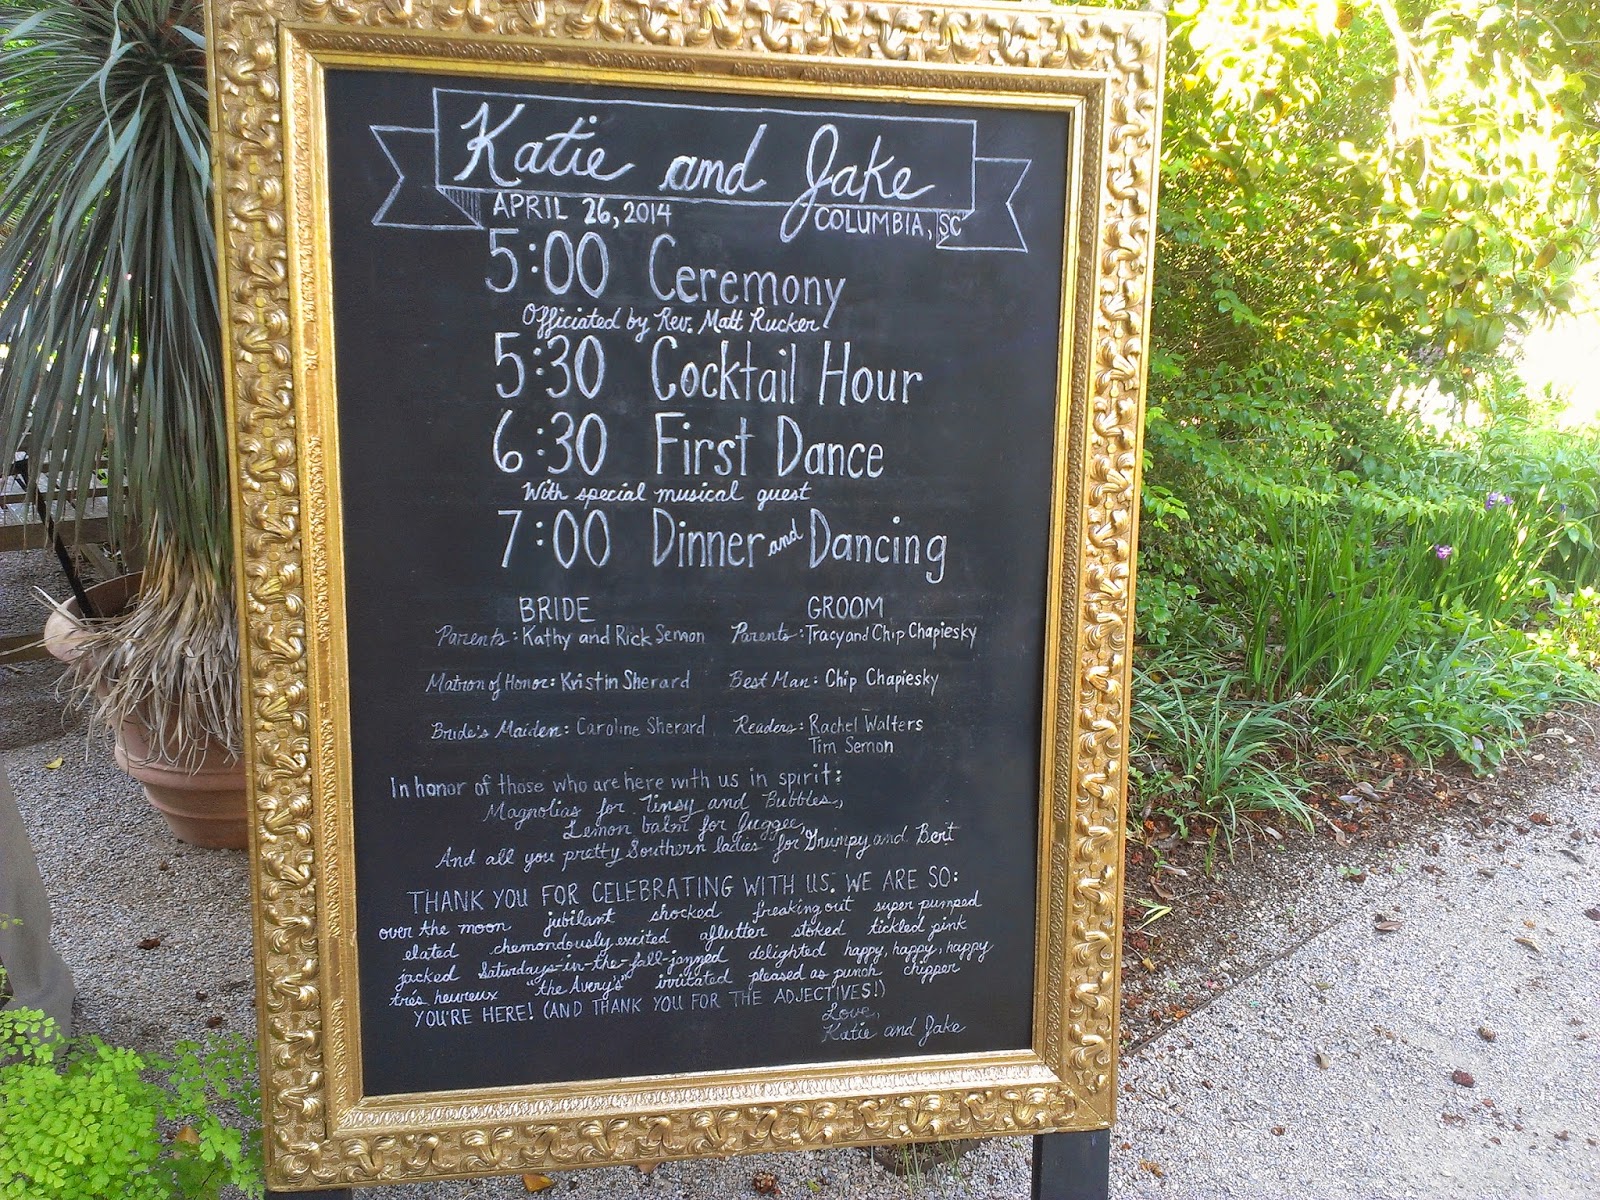 Katie and Jake
APRIL 26, 2014 COLUMBIA, SC
5:00 Ceremony
Officiated by Rev. Matt Rucker
5:30 Cocktail Hour
6:30 First Dance
With special musical guest
7:00 Dinner and Dancing
BRIDE GROOM
Parents: Kathy and Rick Semon Parents: Tracy and Chip Chapiesky
Matron of Honor: Kristin Sherard Best Man: Chip Chapiesky
Bride's Maiden: Caroline Sherard Readers: Rachel Walters
Tim Semon
In honor of those who are here with us in spirit:
Magnolias for Tinsy and Bubbles,
Lemon balm for Juggee,
And all you pretty Southern ladies for Grumpy and Bert
THANK YOU FOR CELEBRATING WITH US. WE ARE SO:
over the moon jubilant shocked freaking out super pumped
elated chemondously excited aflutter stoked tickled pink
jacked Saturdays-in-the-fall-jonned delighted happy, happy, happy
trés heureux "the Avery's" invitated pleased as punch chipper
YOU'RE HERE! (AND THANK YOU FOR THE ADJECTIVES!)
Love,
Katie and Jake